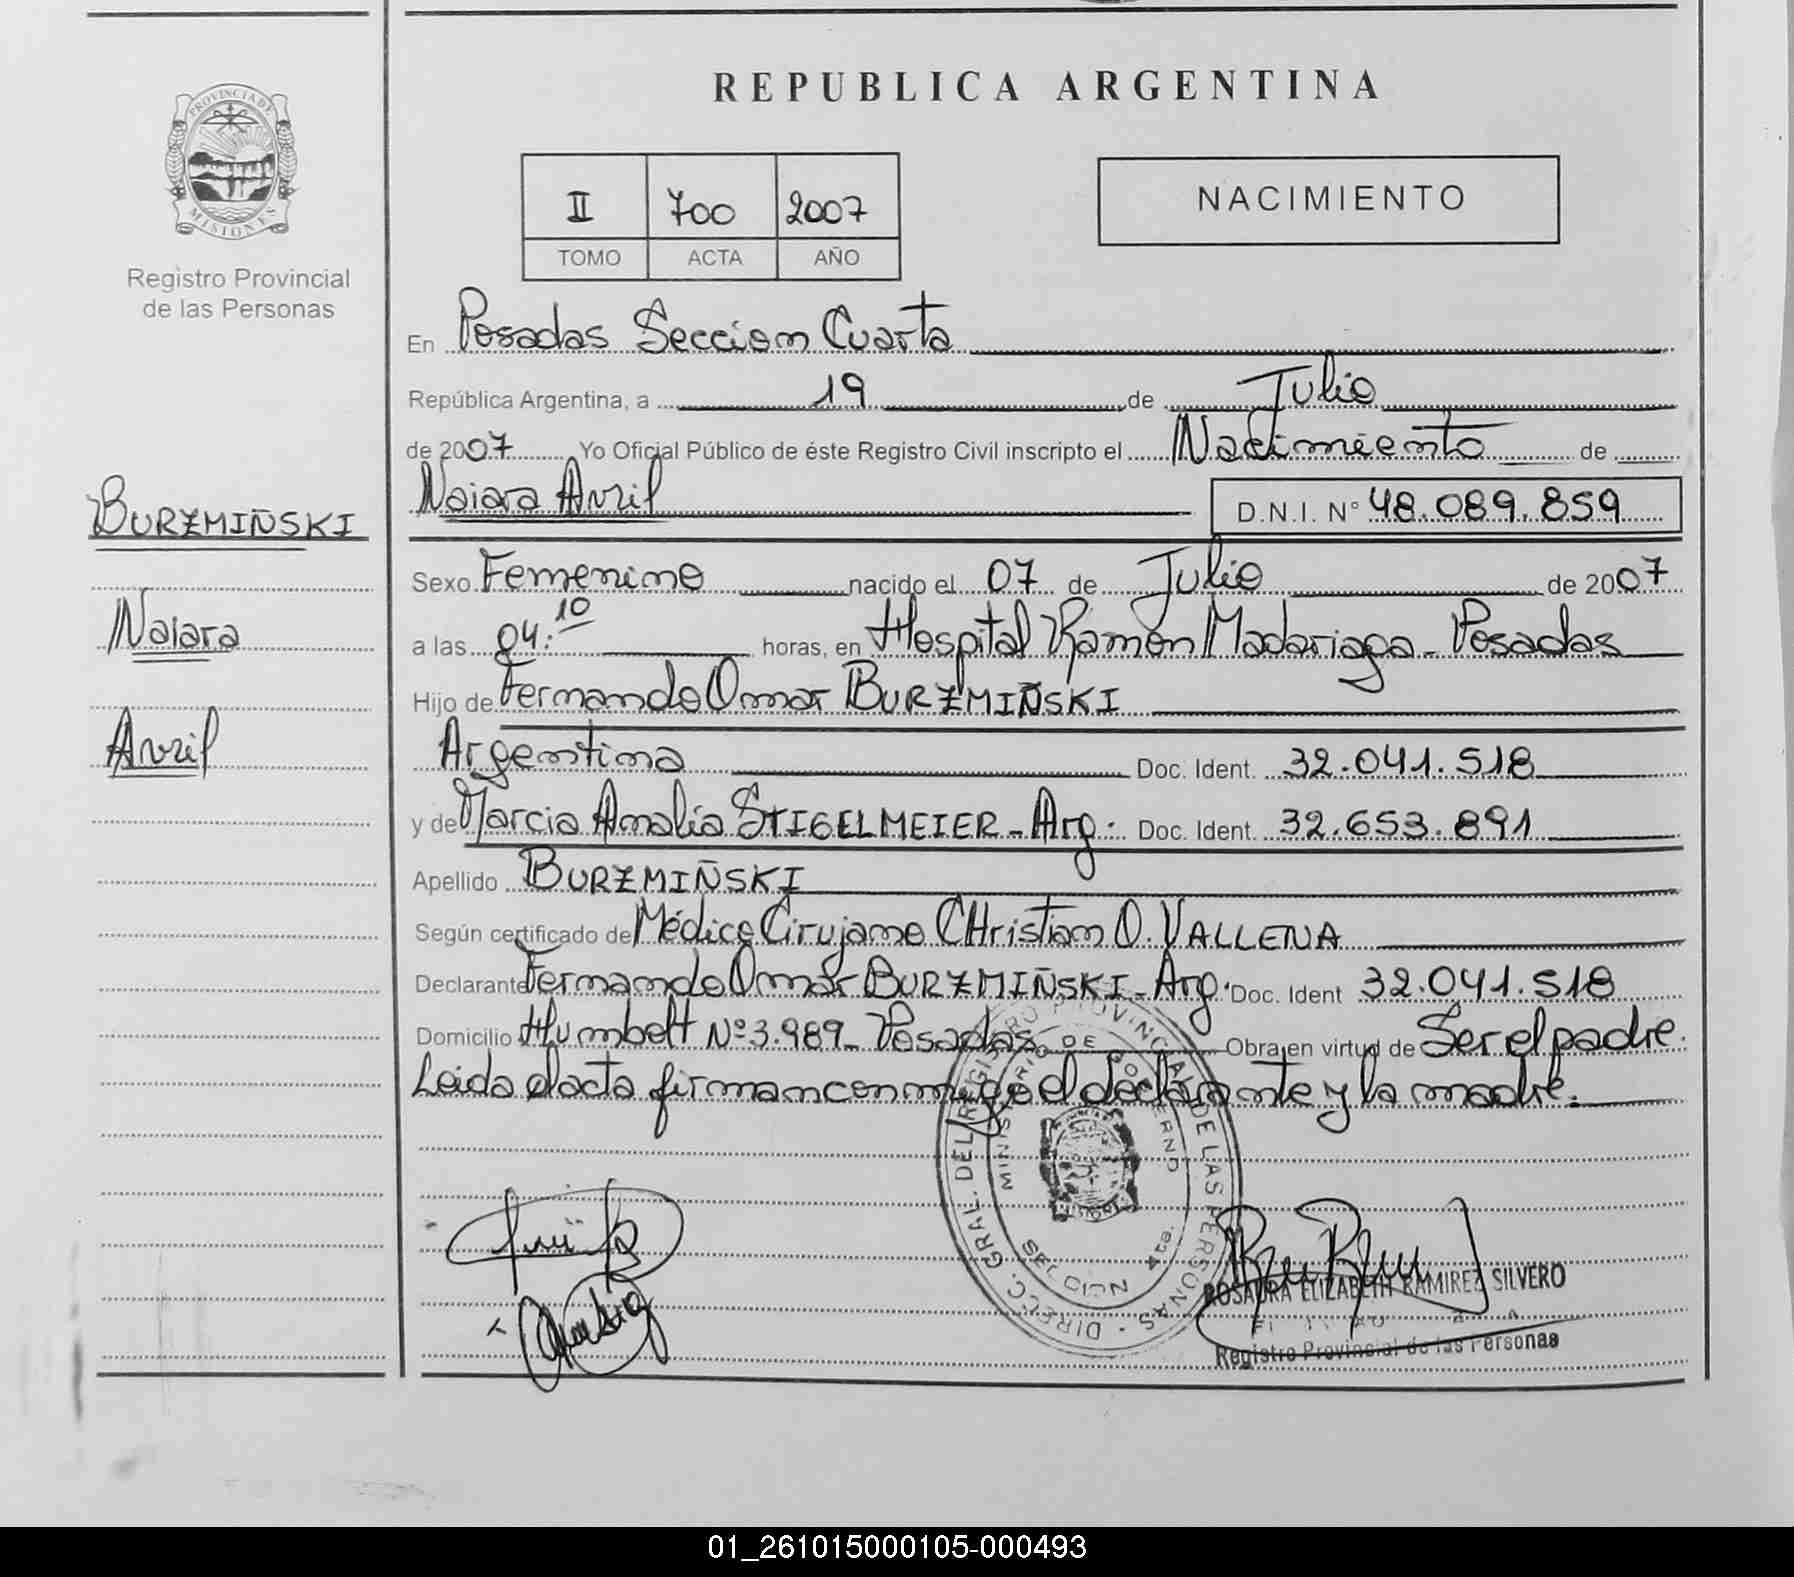 REPUBLICA ARGENTINA
PROVINCIA DE
MISIONES
Registro Provincial
de las Personas
II 700 2007
TOMO ACTA AÑO
NACIMIENTO
En Posadas Seccion Cuarta
República Argentina, a 19 de Julio
de 2007 Yo Oficial Público de éste Registro Civil inscripto el Nacimiento de
Naiara Avril D.N.I. N° 48.089.859
BURZMIÑSKI
Naiara
Avril
Sexo Femenino nacido el 07 de Julio de 2007
a las 04:10 horas, en Hospital Ramón Madariaga - Posadas
Hijo de Fernando Omar BURZMIÑSKI
Argentina Doc. Ident. 32.041.518
y de Marcia Amalia STIGELMEIER - Arg. Doc. Ident. 32.653.891
Apellido BURZMIÑSKI
Según certificado de Médico Cirujano CHristian O. VALLENA
Declarante Fernando Omar BURZMIÑSKI - Arg. Doc. Ident 32.041.518
Domicilio Humbolt Nº 3.989 - Posadas Obra en virtud de Ser el padre.
Leida el acta firman conmigo el declarante y la madre.
DIRECC. GRAL. DEL REGISTRO PROVINCIAL DE LAS PERSONAS
MINISTERIO DE GOBIERNO
SECCION 4ta.
ROSAURA ELIZABETH RAMIREZ SILVERO
Registro Provincial de las Personas
01_261015000105-000493